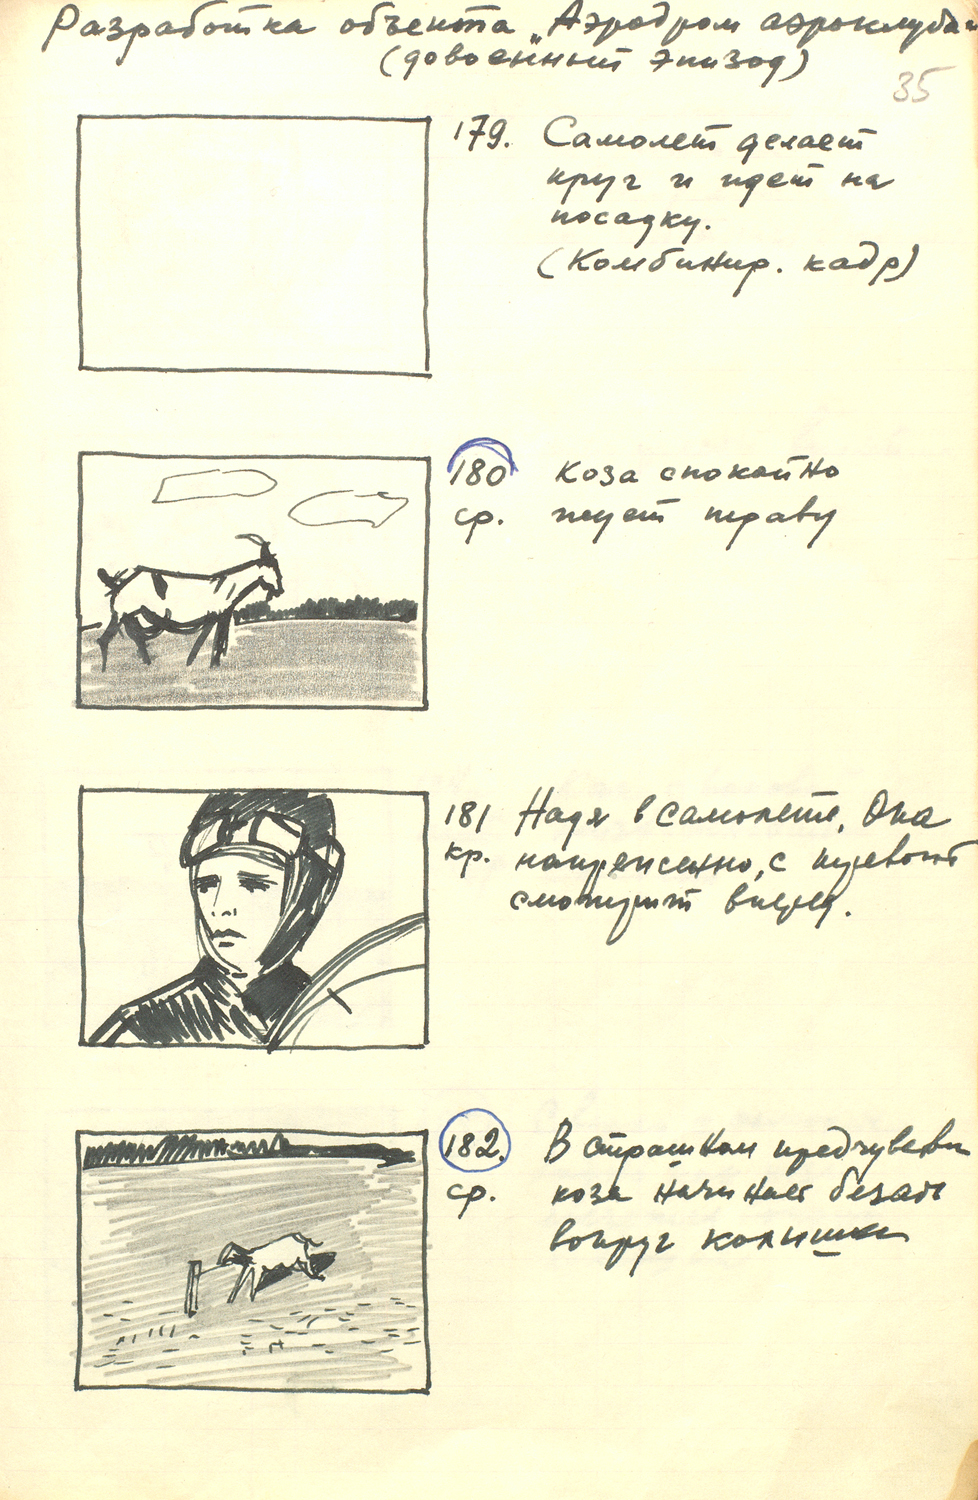 Разработка объекта „Аэродром аэроклуба“
(довоенный эпизод)
35
179. Самолет делает
круг и идет на
посадку.
(Комбинир. кадр)
180 Коза спокойно
ср. жует траву
181 Надя в самолете. Она
кр. напряженно, с
смотрит вперед.
182. В страшном предчувствии
ср. коза начинает бегать
вокруг колышка